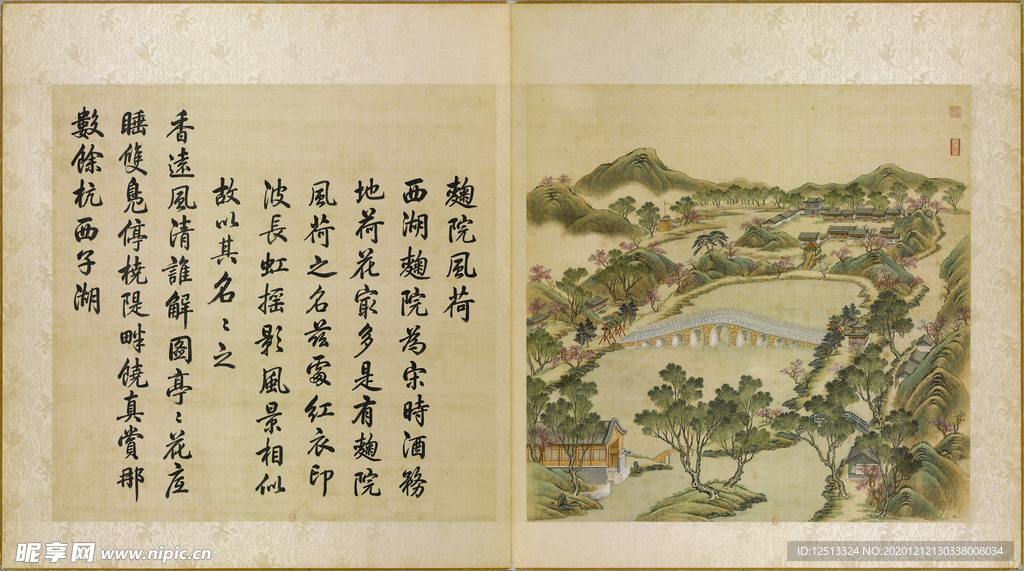 麯院風荷
西湖麯院為宋時酒務
地荷花最多是有麯院
風荷之名茲處紅衣印
波長虹搖影風景相似
故以其名名之
香遠風清誰解圖亭亭花底
睡雙鳧停橈隄畔饒真賞那
數餘杭西子湖
昵享网 www.nipic.cn
ID:12513324 NO:20201212130338008034